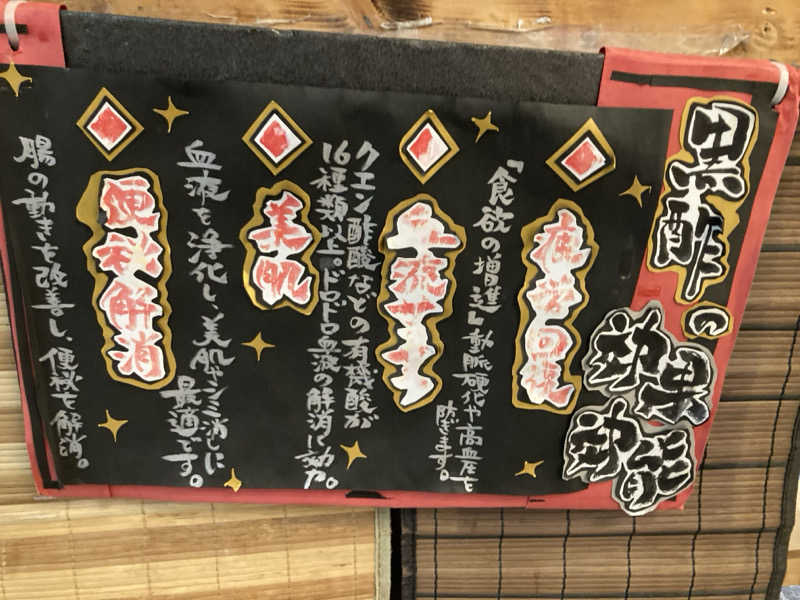 黒酢の
効果
効能
疲労回復
「食欲の増進」動脈硬化や高血圧を
防ぎます。
血液サラサラ
クエン酢酸などの有機酸が
16種類以上。ドロドロ血液の解消に効力。
美肌
血液を浄化し、美肌やシミ消しに
最適です。
便秘解消
腸の動きを改善し、便秘を解消。